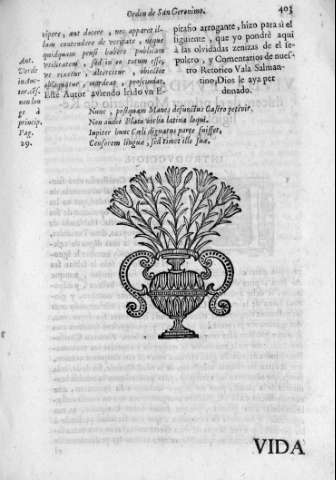 Orden de San Geronimo. 403
vipere, aut docere, nos apparet il-
lum contendere de veritate, neque
quidquam pensi habere publicam
utilitatem, sed in eo totum esse,
ut vexetur, altercetur, obscéne
oblaquatur, mordeat, profundat,
Este Autor aviendo sido un E-
Ant.
Verde
non lon-
ge à
princip.
Pag.
29.
pitafio arrogante, hizo para si el
siguiente, que yo pondrè aqui
à las olvidadas zenizas de el se-
pulcro, y Comentarios de nues-
tro Retorico Vala Salman-
tino, Dios le aya per-
donado.
Nunc, postquam Manes defunctus Vala petivit,
Non audet Pluto verba latina loqui.
Iupiter hunc Cæli dignatus parte fuisset,
Censorem linguæ, sed timet ille suæ.
VIDA